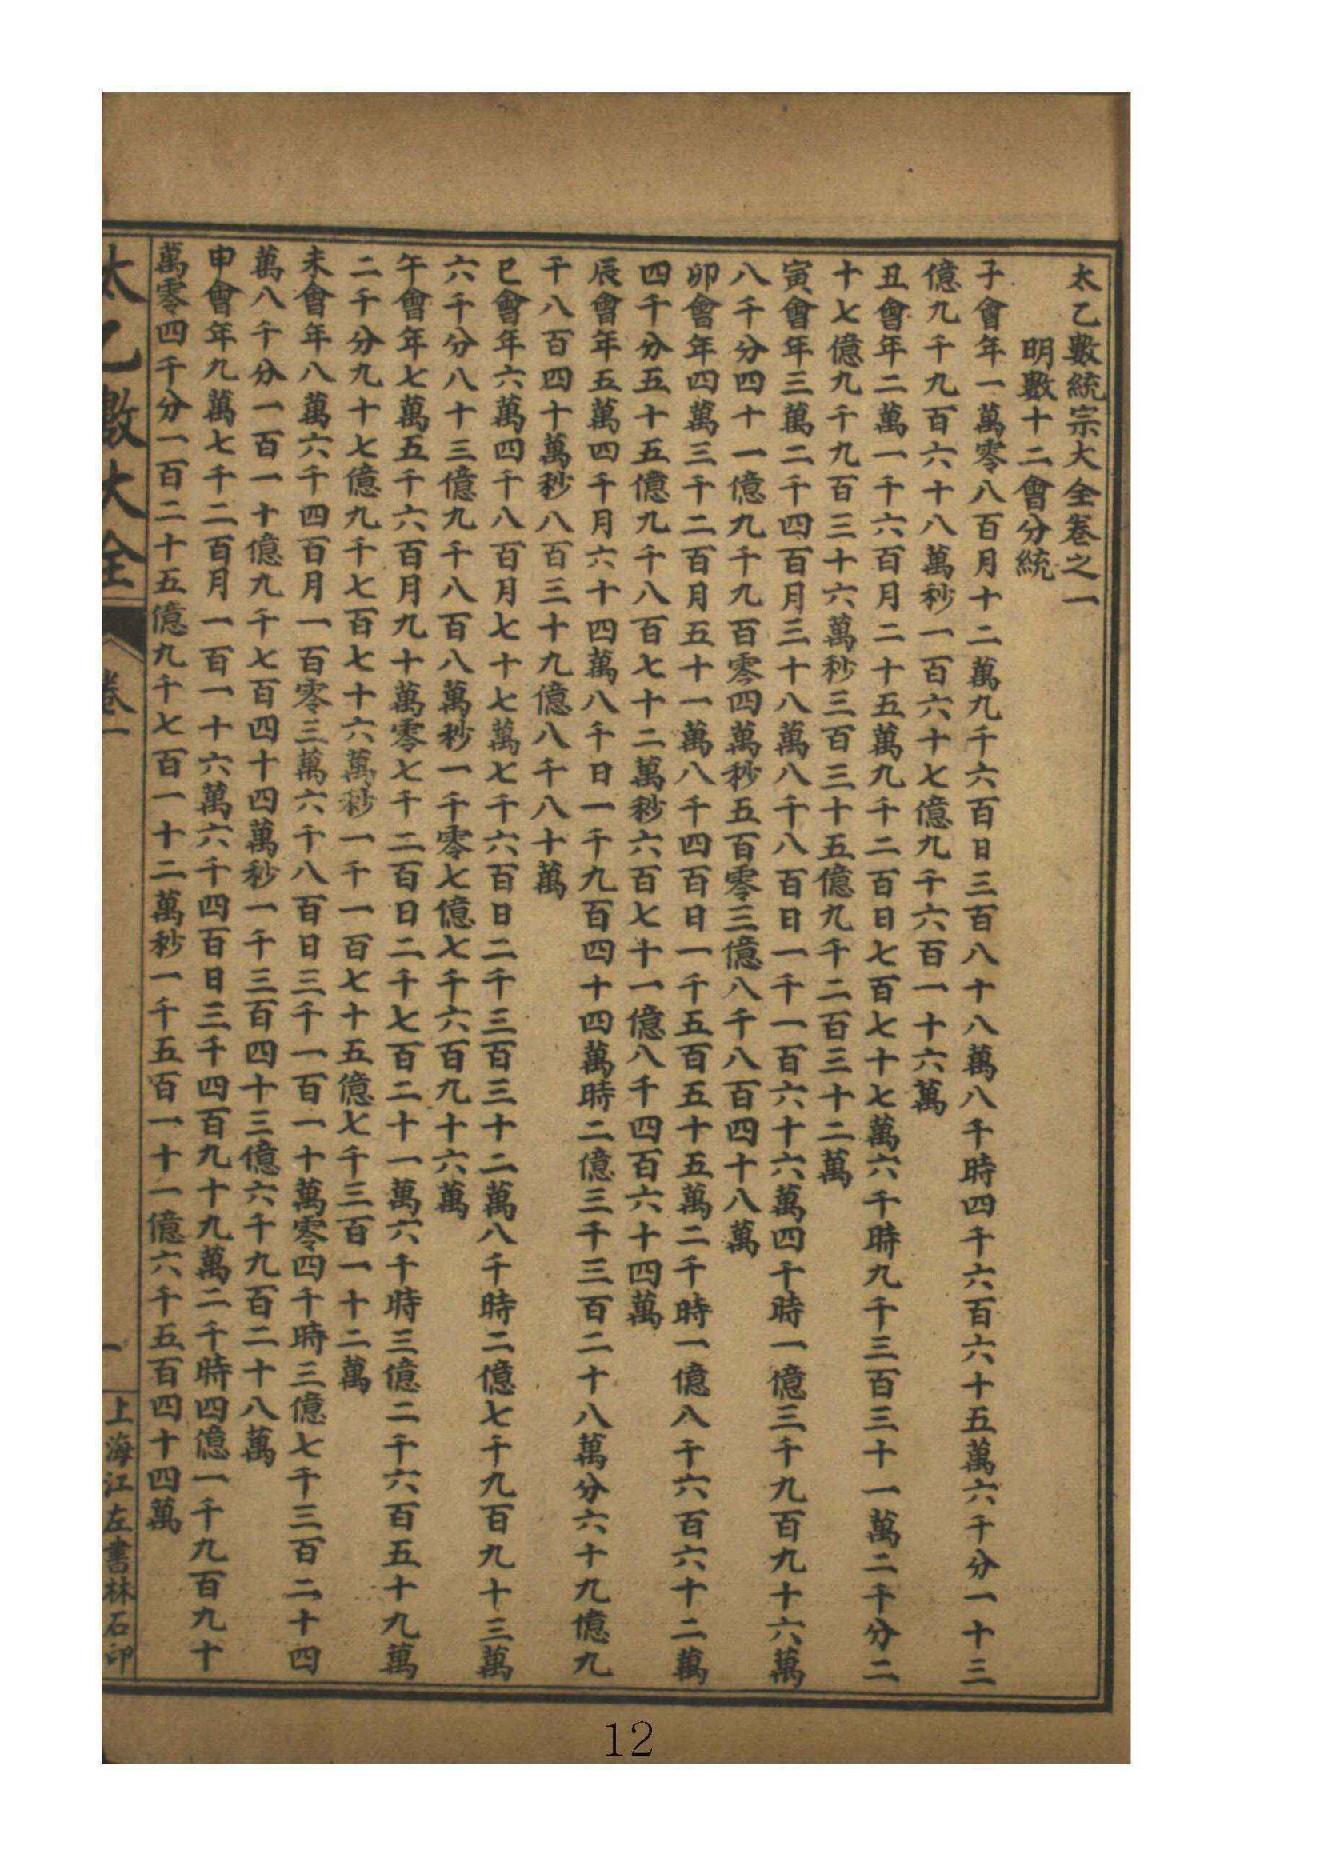 太乙數統宗大全卷之一
明數十二會分統
子會年一萬零八百月十二萬九千六百日三百八十八萬八千時四千六百六十五萬六千分一十三
億九千九百六十八萬秒一百六十七億九千六百一十六萬
丑會年二萬一千六百月二十五萬九千二百日七百七十七萬六千時九千三百三十一萬二千分二
十七億九千九百三十六萬秒三百三十五億九千二百三十二萬
寅會年三萬二千四百月三十八萬八千八百日一千一百六十六萬四千時一億三千九百九十六萬
八千分四十一億九千九百零四萬秒五百零三億八千八百四十八萬
卯會年四萬三千二百月五十一萬八千四百日一千五百五十五萬二千時一億八千六百六十二萬
四千分五十五億九千八百七十二萬秒六百七十一億八千四百六十四萬
辰會年五萬四千月六十四萬八千日一千九百四十四萬時二億三千三百二十八萬分六十九億九
千八百四十萬秒八百三十九億八千八十萬
巳會年六萬四千八百月七十七萬七千六百日二千三百三十二萬八千時二億七千九百九十三萬
六千分八十三億九千八百八萬秒一千零七億七千六百九十六萬
午會年七萬五千六百月九十萬零七千二百日二千七百二十一萬六千時三億二千六百五十九萬
二千分九十七億九千七百七十六萬秒一千一百七十五億七千三百一十二萬
未會年八萬六千四百月一百零三萬六千八百日三千一百一十萬零四千時三億七千三百二十四
萬八千分一百一十億九千七百四十四萬秒一千三百四十三億六千九百二十八萬
申會年九萬七千二百月一百一十六萬六千四百日三千四百九十九萬二千時四億一千九百九十
萬零四千分一百二十五億九千七百一十二萬秒一千五百一十一億六千五百四十四萬
太乙數大全
卷一
一
上海江左書林石印
12